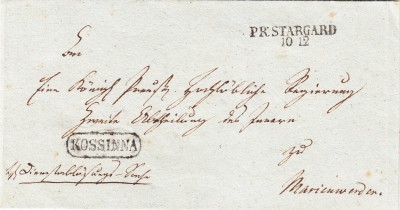 PR. STARGARD
10 12
An
Eine Königl Preuß. Hochlöbliche Regierung
Zweite Abtheilung des Innern
KOSSINNA
zu
Marienwerder.